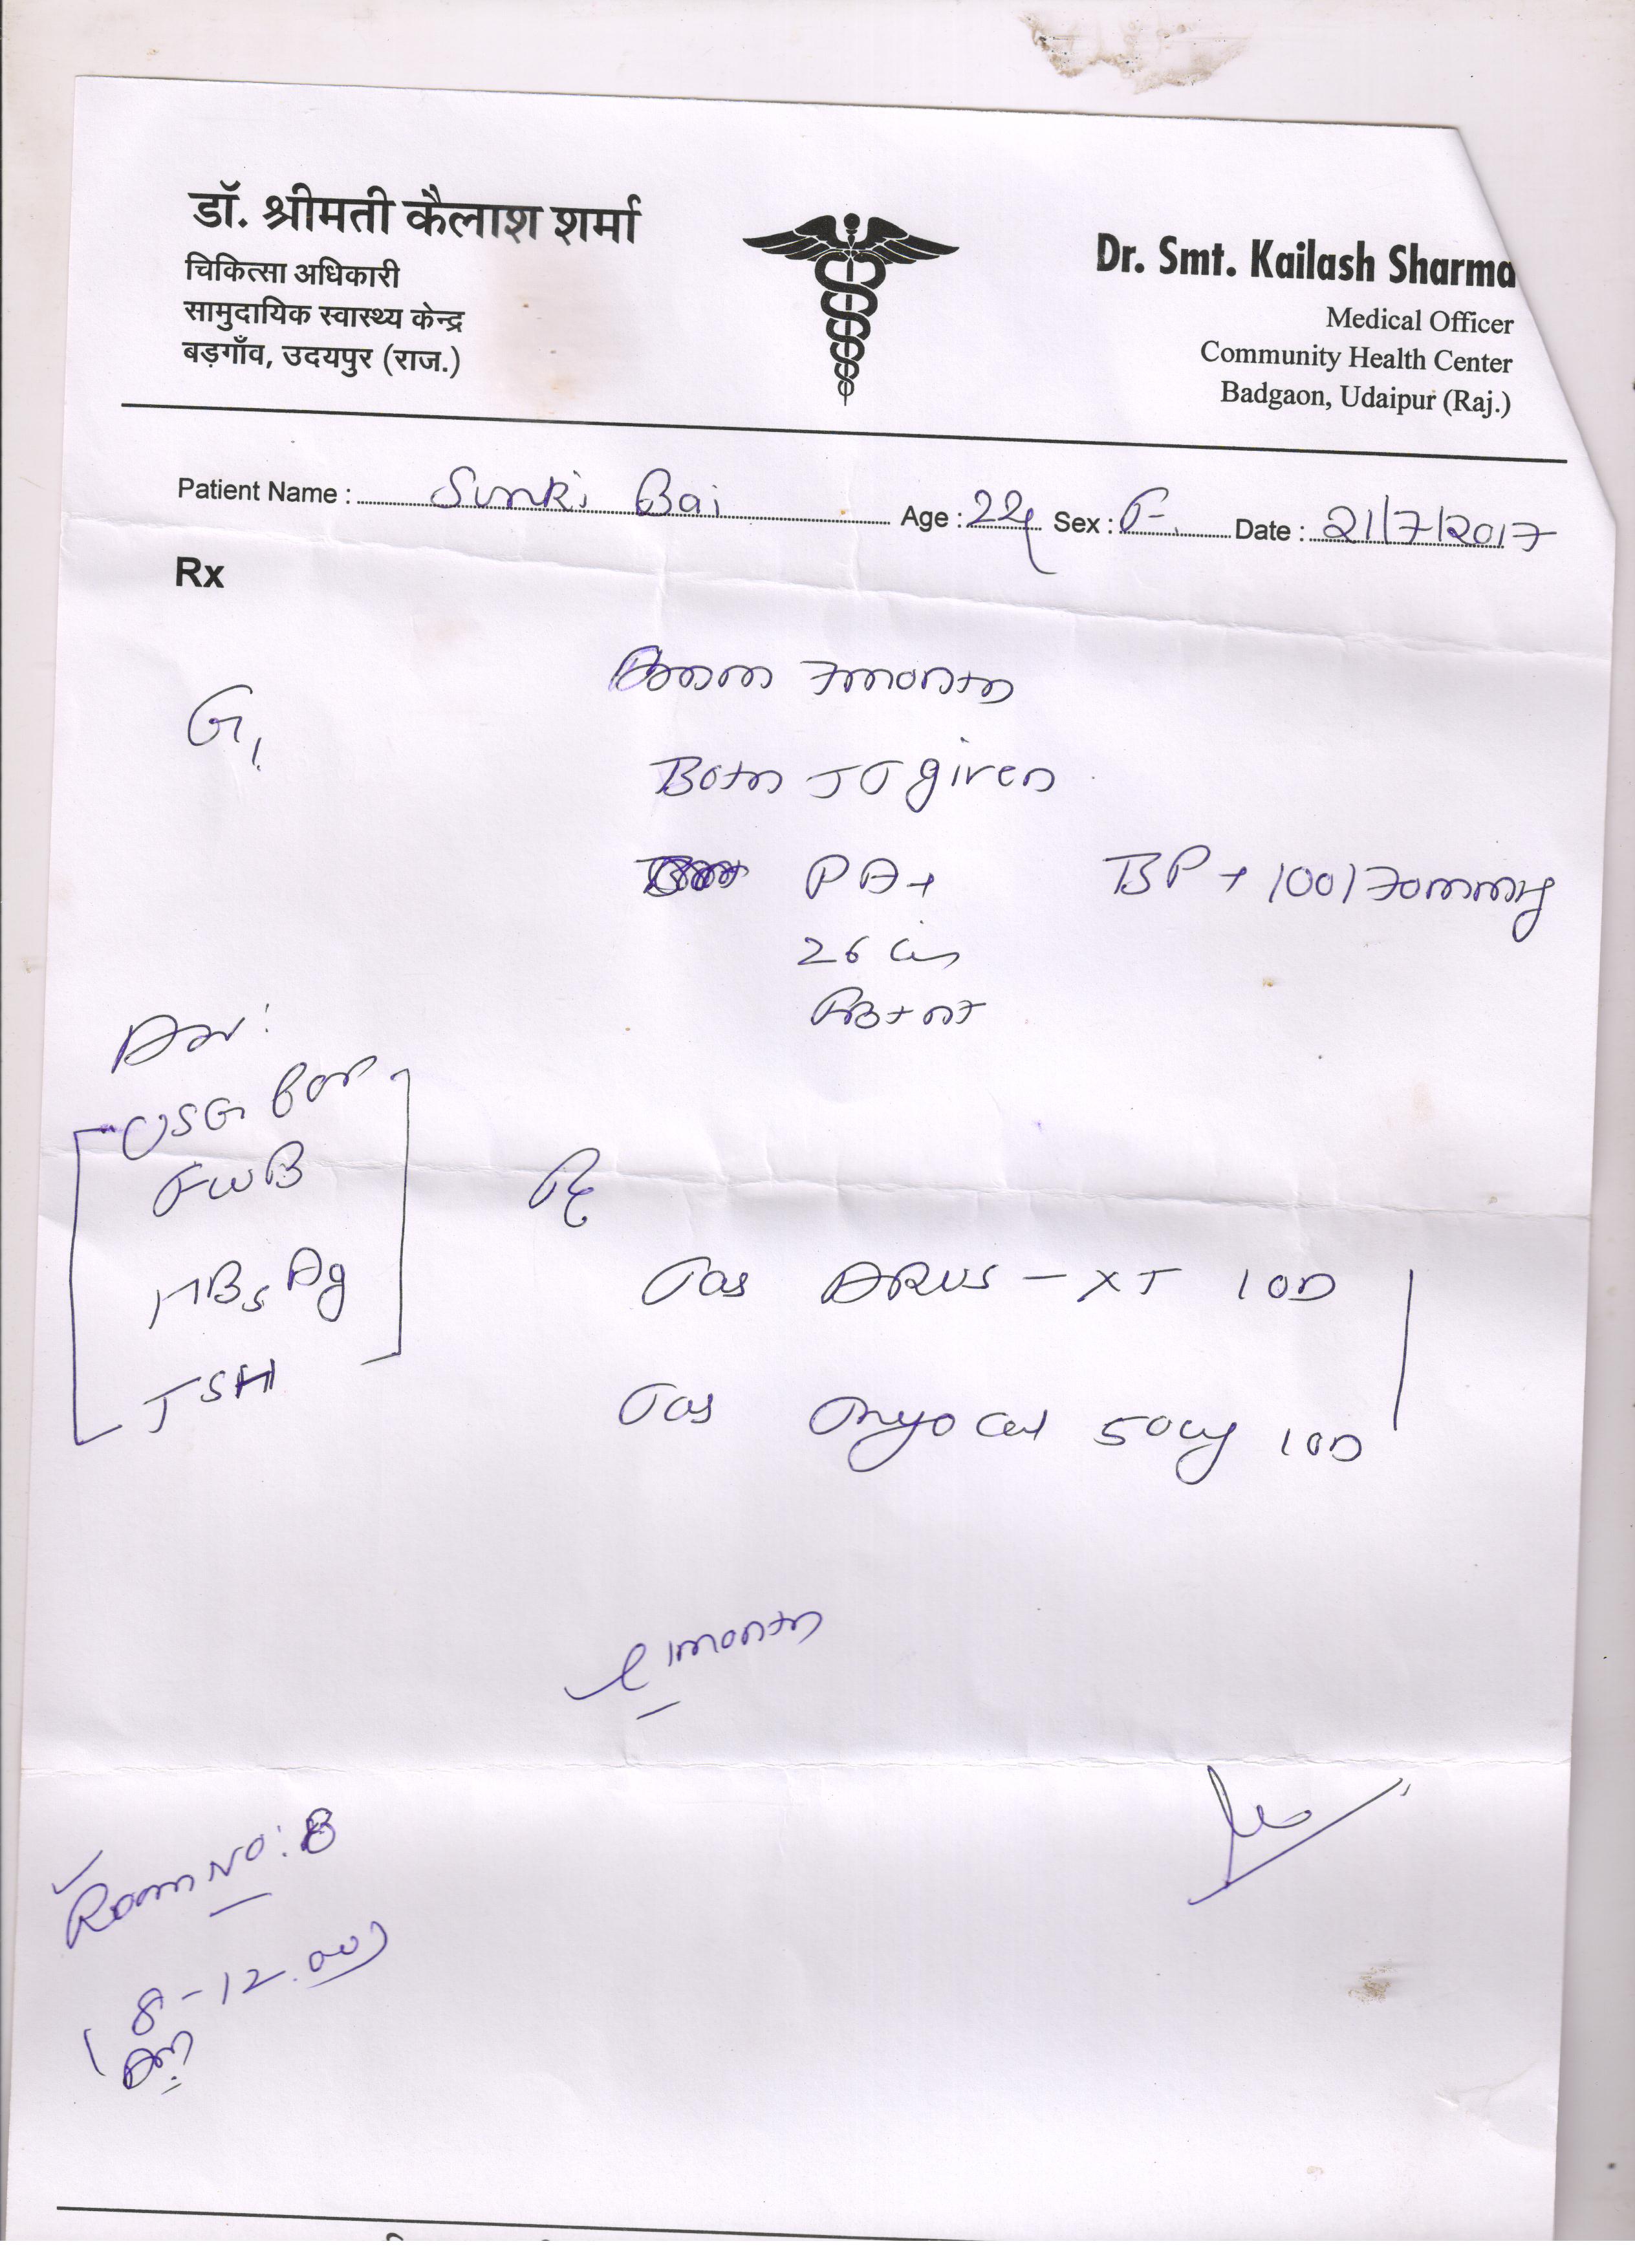 डॉ. श्रीमती कैलाश शर्मा
चिकित्सा अधिकारी
सामुदायिक स्वास्थ्य केन्द्र
बड़गाँव, उदयपुर (राज.)
Dr. Smt. Kailash Sharma
Medical Officer
Community Health Center
Badgaon, Udaipur (Raj.)
Patient Name : Sunki Bai Age : 22y Sex : F. Date : 21/7/2017
Rx
7 month
G1
Both TT given
PA BP 100/70mmHg
26
USG for
FWB
HBsAg
TSH
Rx
Tab - XT 1OD
Tab 1OD
1 month
Room No: 8
8-12.00